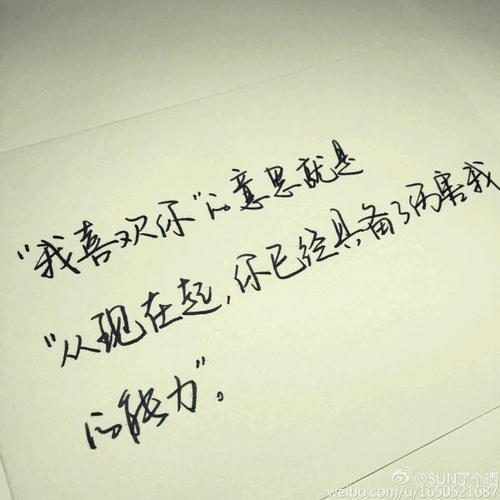 "我喜欢你"的意思就是
"从现在起,你已经具备了伤害我
的能力"。
@SUN了个
weibo.com/u/1650521687